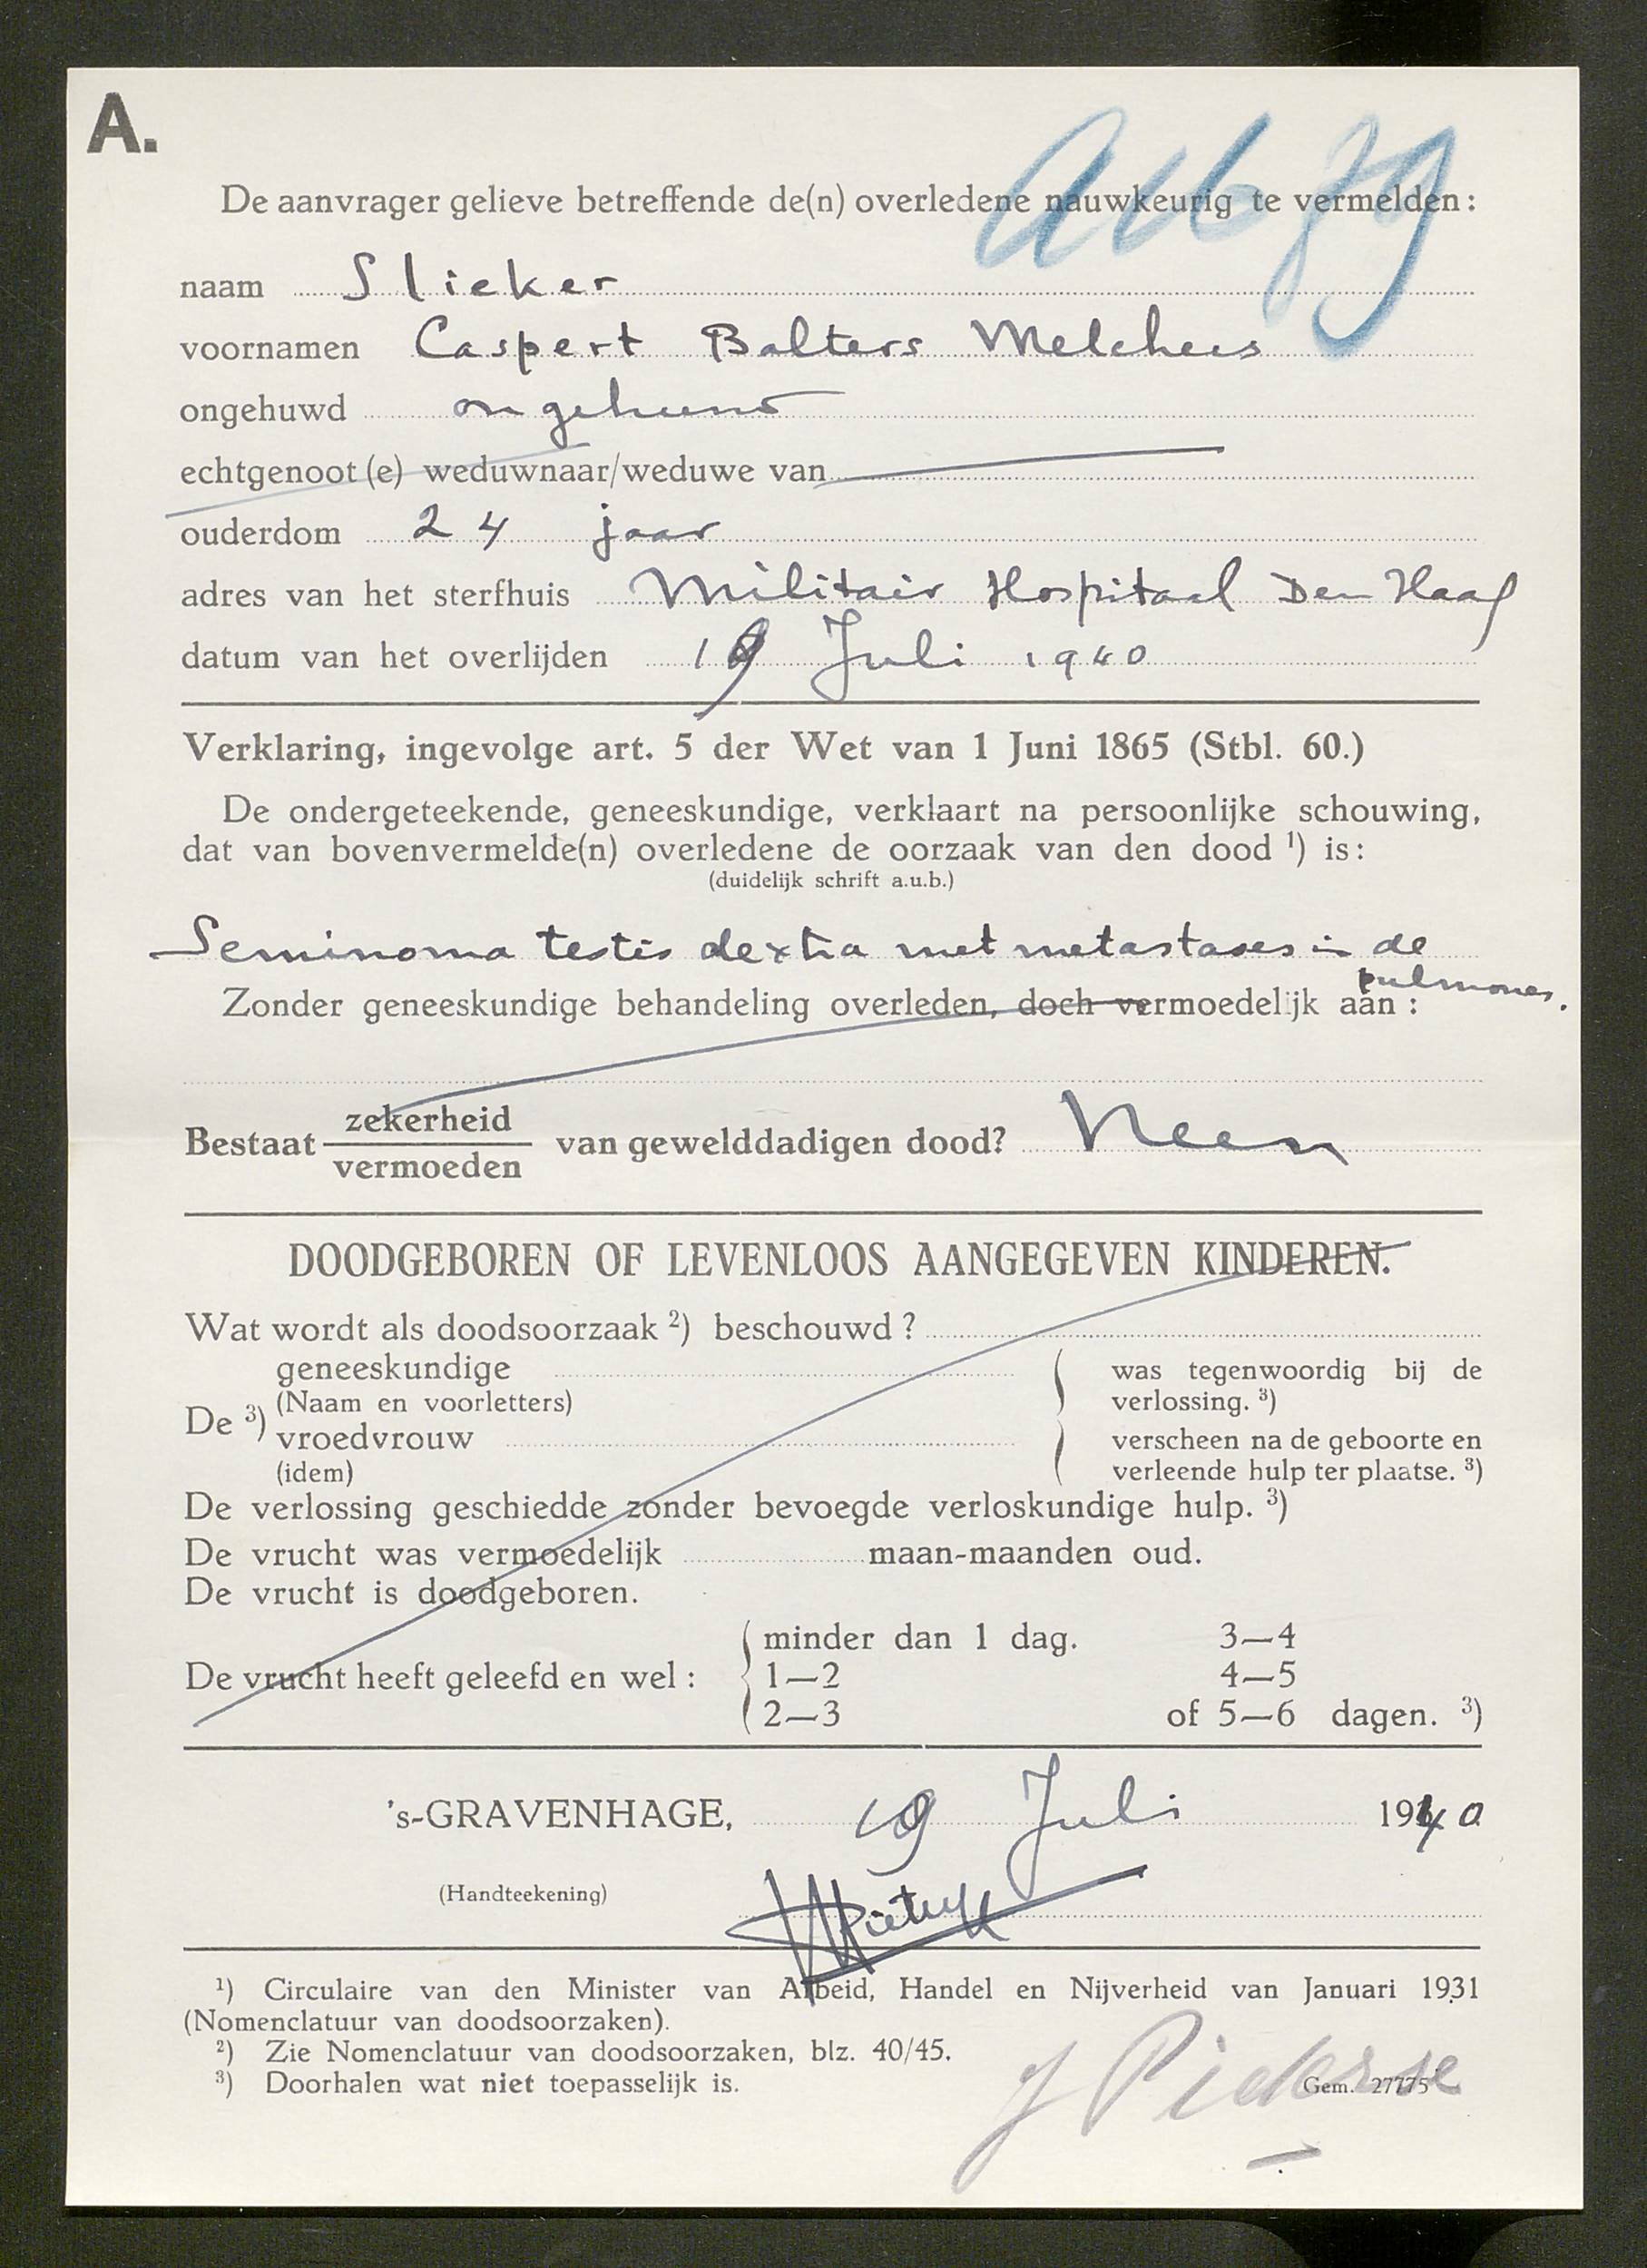 A.
De aanvrager gelieve betreffende de(n) overledene nauwkeurig te vermelden:
naam Slieker
voornamen Caspert Balters Melchers
ongehuwd ongehuwd
echtgenoot(e) weduwnaar/weduwe van
ouderdom 24 jaar
adres van het sterfhuis Militair Hospitaal Den Haag
datum van het overlijden 19 Juli 1940
Verklaring, ingevolge art. 5 der Wet van 1 Juni 1865 (Stbl. 60.)
De ondergeteekende, geneeskundige, verklaart na persoonlijke schouwing,
dat van bovenvermelde(n) overledene de oorzaak van den dood ¹) is:
(duidelijk schrift a.u.b.)
Seminoma testis dextra met metastases in de
pulmones.
Zonder geneeskundige behandeling overleden, doch vermoedelijk aan:
zekerheid
Bestaat van gewelddadigen dood? Neen
vermoeden
DOODGEBOREN OF LEVENLOOS AANGEGEVEN KINDEREN.
Wat wordt als doodsoorzaak ²) beschouwd?
geneeskundige was tegenwoordig bij de
(Naam en voorletters) verlossing. ³)
De ³)
vroedvrouw verscheen na de geboorte en
(idem) verleende hulp ter plaatse. ³)
De verlossing geschiedde zonder bevoegde verloskundige hulp. ³)
De vrucht was vermoedelijk maan-maanden oud.
De vrucht is doodgeboren.
minder dan 1 dag. 3—4
De vrucht heeft geleefd en wel: 1—2 4—5
2—3 of 5—6 dagen. ³)
's-GRAVENHAGE, 19 Juli 1940
(Handteekening)
¹) Circulaire van den Minister van Arbeid, Handel en Nijverheid van Januari 1931
(Nomenclatuur van doodsoorzaken).
²) Zie Nomenclatuur van doodsoorzaken, blz. 40/45.
³) Doorhalen wat niet toepasselijk is.
Gem. 27775